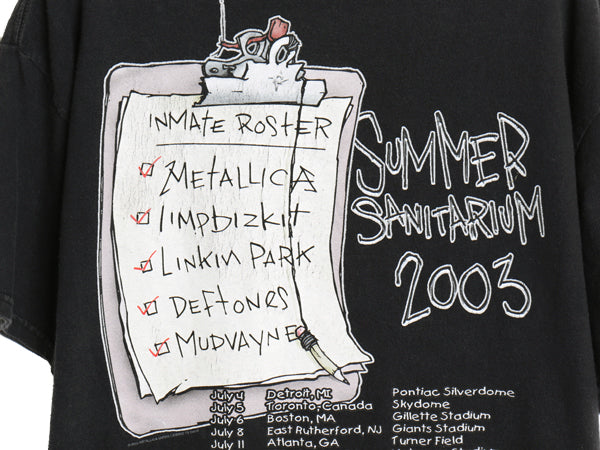 INMATE ROSTER
METALLICA
limpbizkit
LINKIN PARK
DEFTONES
MUDVAYNE
SUMMER
SANITARIUM
2003
July 4 Detroit, MI Pontiac Silverdome
July 5 Toronto, Canada Skydome
July 6 Boston, MA Gillette Stadium
July 8 East Rutherford, NJ Giants Stadium
July 11 Atlanta, GA Turner Field